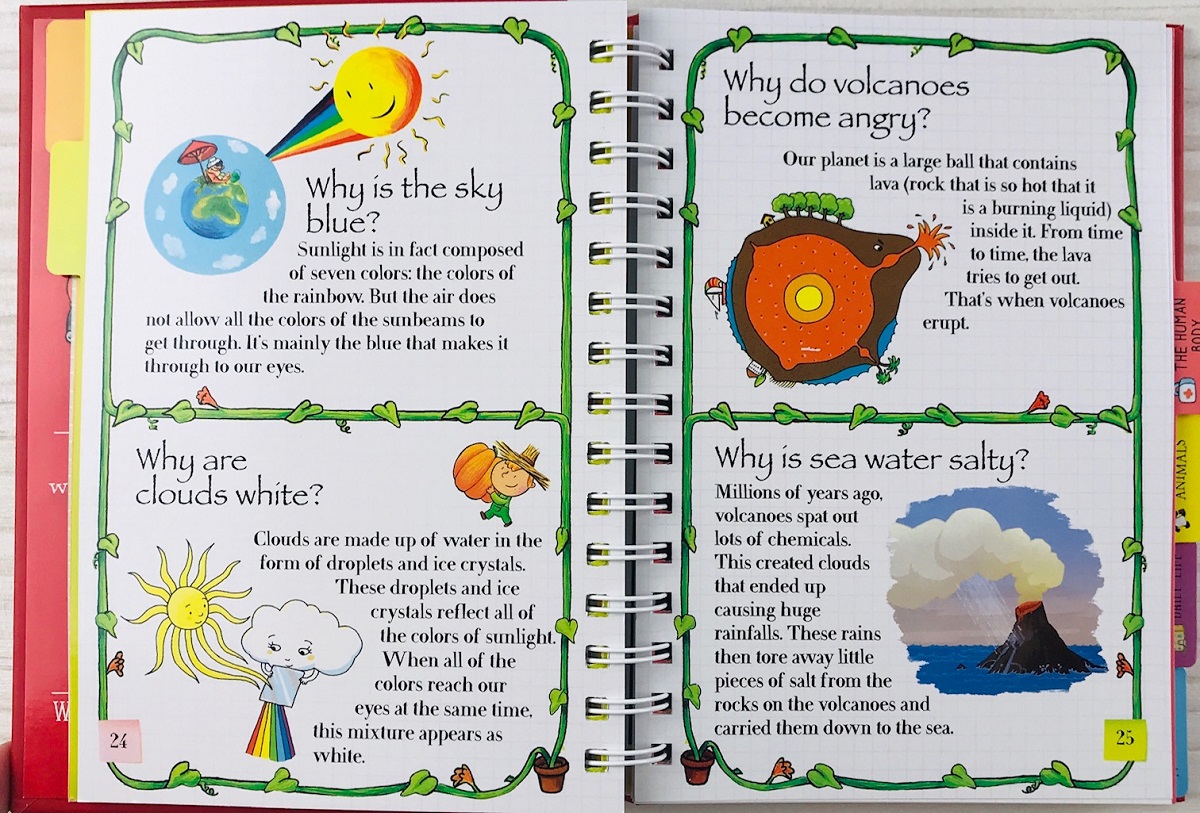 Why is the sky
blue?
Sunlight is in fact composed
of seven colors: the colors of
the rainbow. But the air does
not allow all the colors of the sunbeams to
get through. It's mainly the blue that makes it
through to our eyes.
Why are
clouds white?
Clouds are made up of water in the
form of droplets and ice crystals.
These droplets and ice
crystals reflect all of
the colors of sunlight.
When all of the
colors reach our
eyes at the same time,
this mixture appears as
white.
24
Why do volcanoes
become angry?
Our planet is a large ball that contains
lava (rock that is so hot that it
is a burning liquid)
inside it. From time
to time, the lava
tries to get out.
That's when volcanoes
erupt.
Why is sea water salty?
Millions of years ago,
volcanoes spat out
lots of chemicals.
This created clouds
that ended up
causing huge
rainfalls. These rains
then tore away little
pieces of salt from the
rocks on the volcanoes and
carried them down to the sea.
25
THE HUMAN
BODY
ANIMALS